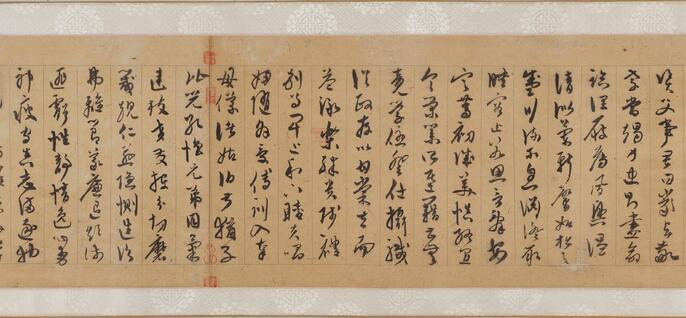 資父事君曰嚴與敬
孝當竭力忠則盡命
臨深履薄夙興溫
清似蘭斯馨如松之
盛川流不息淵澄取
映容止若思言辭安
定篤初誠美慎終宜
令榮業所基籍甚無
竟學優登仕攝職
從政存以甘棠去而
益詠樂殊貴賤禮
別尊卑上和下睦夫唱
婦隨外受傅訓入奉
母儀諸姑伯叔猶子
比兒孔懷兄弟同氣
連枝交友投分切磨
箴規仁慈隱惻造次
弗離節義廉退顛沛
匪虧性靜情逸心動
神疲守真志滿逐物